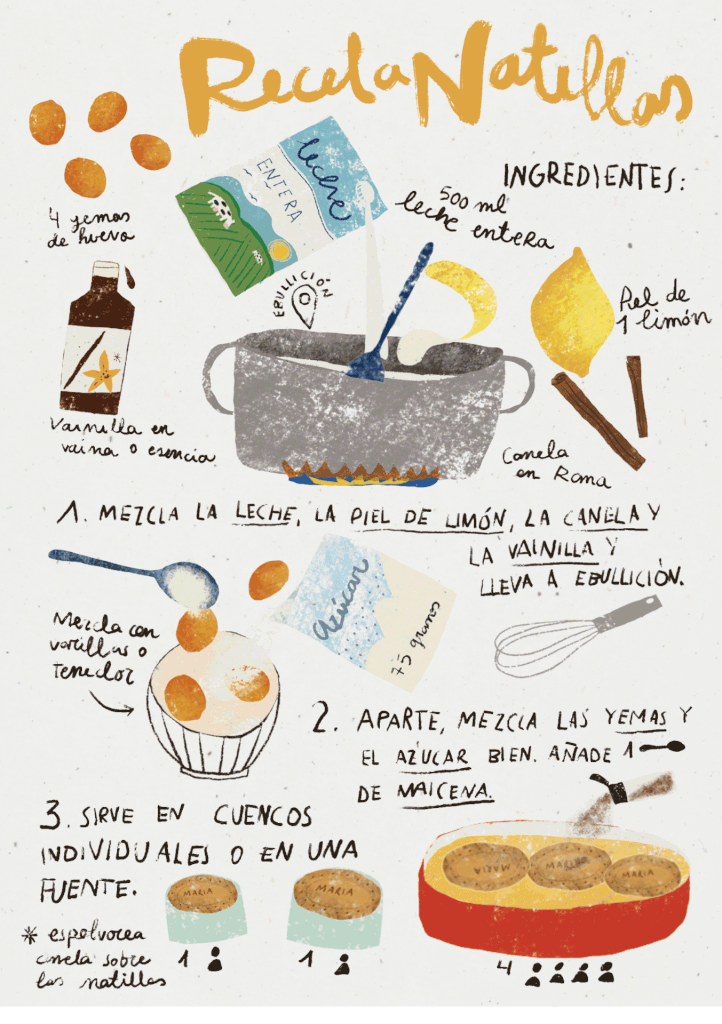 Receta Natillas
INGREDIENTES:
4 yemas
de huevo
leche
ENTERA
500 ml
leche entera
EBULLICIÓN
Piel de
1 limón
Vainilla en
vaina o esencia
Canela
en Rama
1. MEZCLA LA LECHE, LA PIEL DE LIMÓN, LA CANELA Y
LA VAINILLA Y
LLEVA A EBULLICIÓN.
Azúcar
75 gramos
Mezcla con
varillas o
Tenedor
2. APARTE, MEZCLA LAS YEMAS Y
EL AZÚCAR BIEN. AÑADE 1
DE MAICENA.
3. SIRVE EN CUENCOS
INDIVIDUALES O EN UNA
FUENTE.
MARIA
MARIA
MARIA
MARIA
MARIA
* espolvorea
canela sobre
las natillas
1
1
4